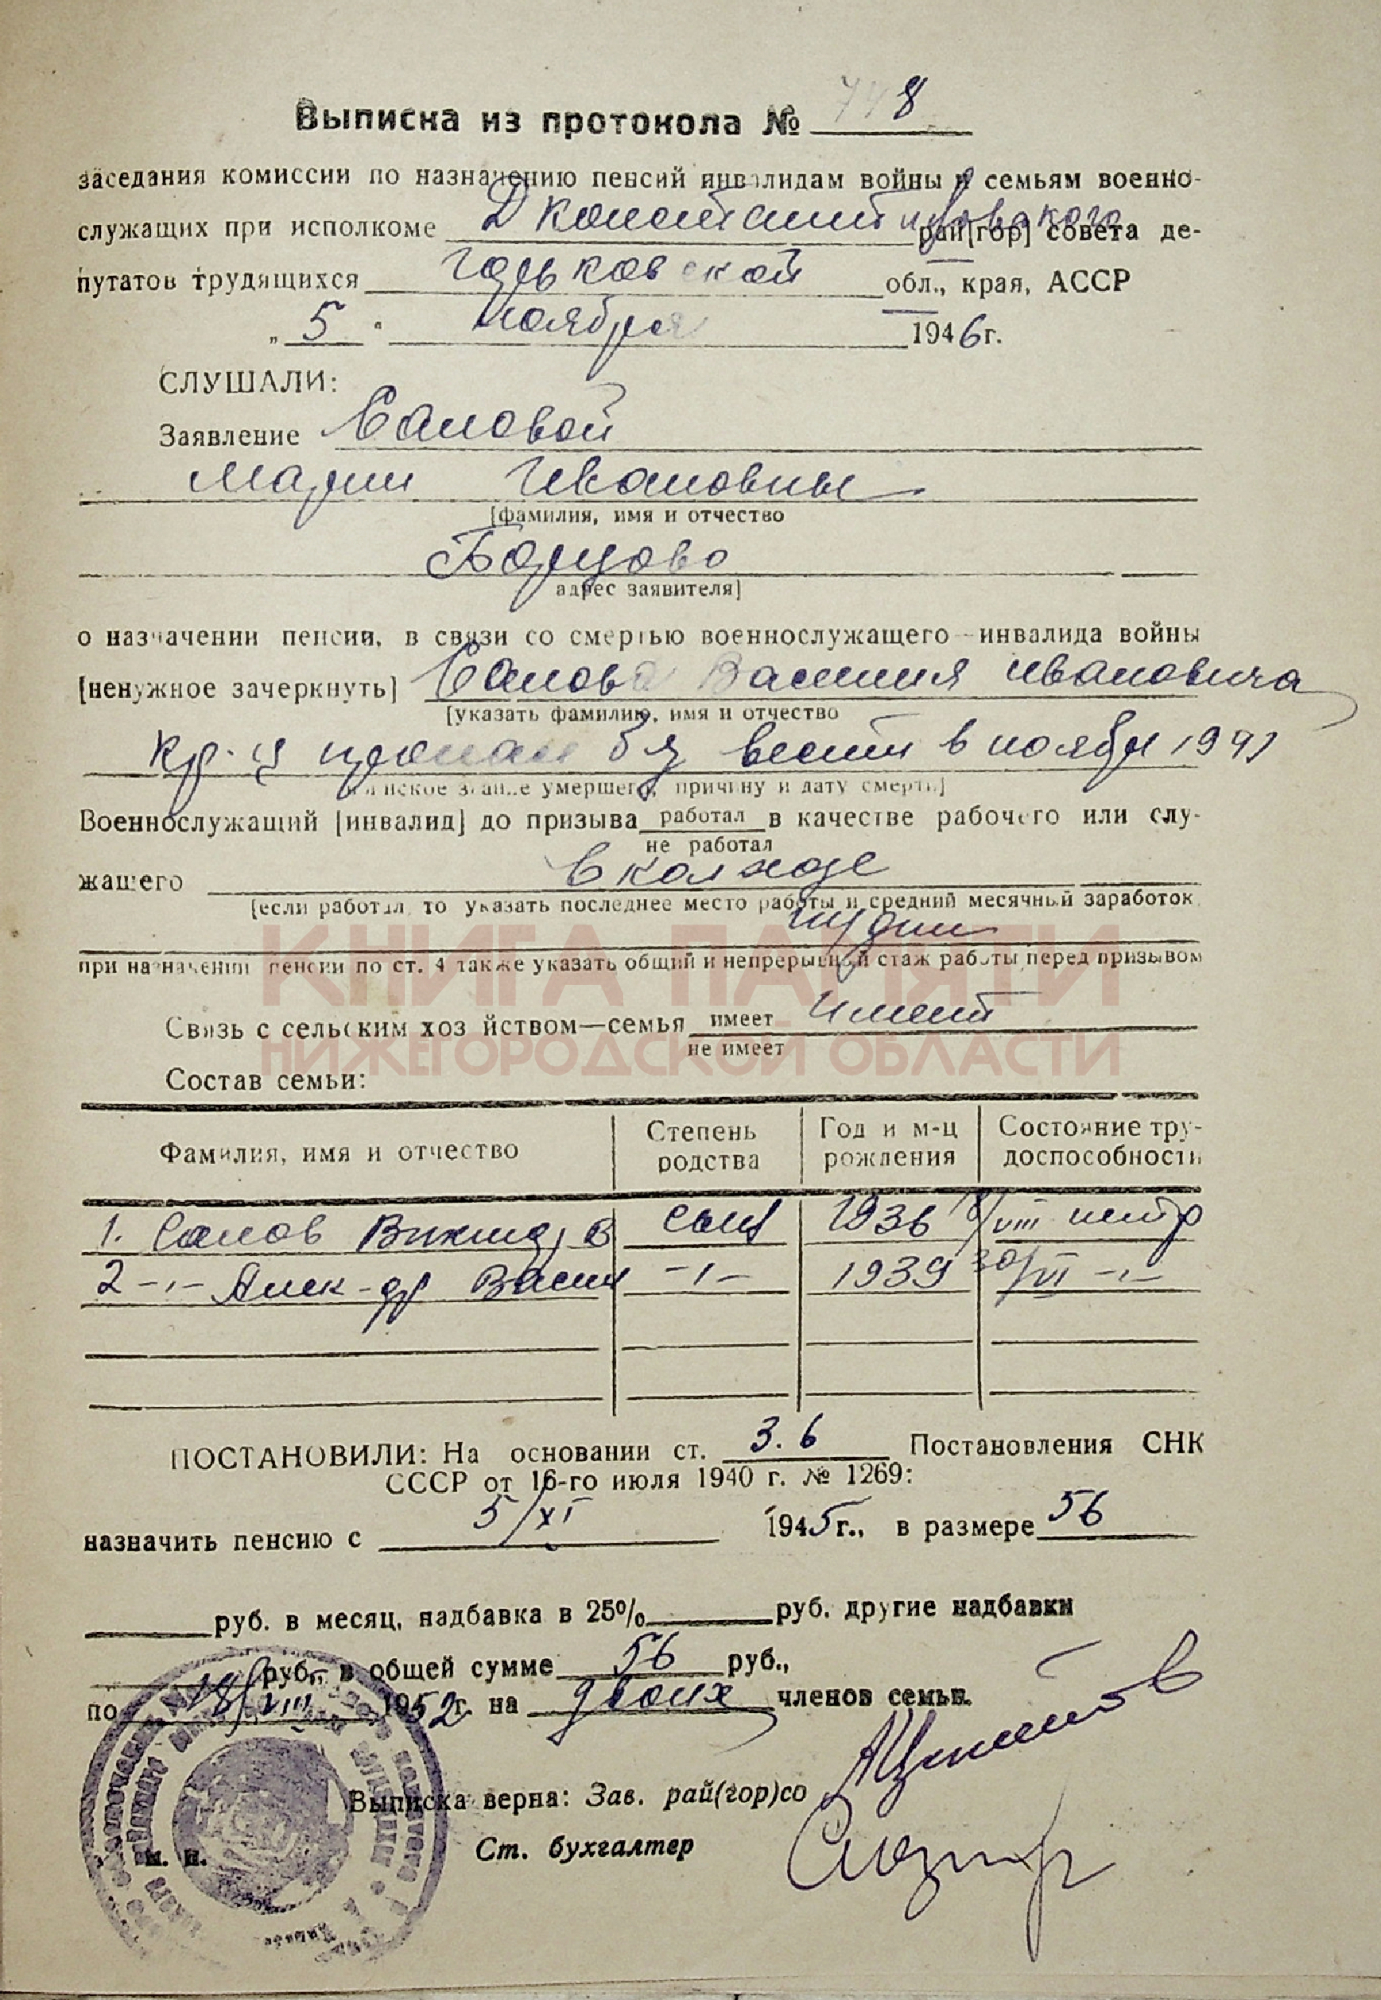 Выписка из протокола № 748
заседания комиссии по назначению пенсий инвалидам войны и семьям военно-
служащих при исполкоме Д Константиновского рай[гор] совета де-
путатов трудящихся Горьковской обл., края, АССР
„ 5 " ноября 1946 г.
СЛУШАЛИ:
Заявление Саловой
Марии Ивановны
[фамилия, имя и отчество
Борцово
адрес заявителя]
о назначении пенсии, в связи со смертью военнослужащего—инвалида войны
[ненужное зачеркнуть] Салова Василия Ивановича
[указать фамилию, имя и отчество
кр-ц пропал б/з вести в ноябре 1941
воинское звание умершего, причину и дату смерти]
Военнослужащий [инвалид] до призыва работал в качестве рабочего или слу-
не работал
жащего в колхозе
[если работал, то указать последнее место работы и средний месячный заработок
КНИГА ПАМЯТИ
при назначении пенсии по ст. 4 также указать общий и непрерывный стаж работы перед призывом
Связь с сельским хозяйством—семья имеет имеет
не имеет
НИЖЕГОРОДСКОЙ ОБЛАСТИ
Состав семьи:
Фамилия, имя и отчество Степень родства Год и м-ц рождения Состояние тру-доспособности
1. Салов В сын 1936 18/VIII нетр
2 -〃- Алек-др Васил -〃- 1939 30/VI -〃-
ПОСТАНОВИЛИ: На основании ст. 3.6 Постановления СНК
СССР от 16-го июля 1940 г. № 1269:
назначить пенсию с 5/XI 1945 г., в размере 56
руб. в месяц, надбавка в 25% руб. другие надбавки
руб., в общей сумме 56 руб.,
по 18/VIII 1952 г. на двоих членов семьи.
Выписка верна: Зав. рай(гор)со
Ст. бухгалтер
м. п.